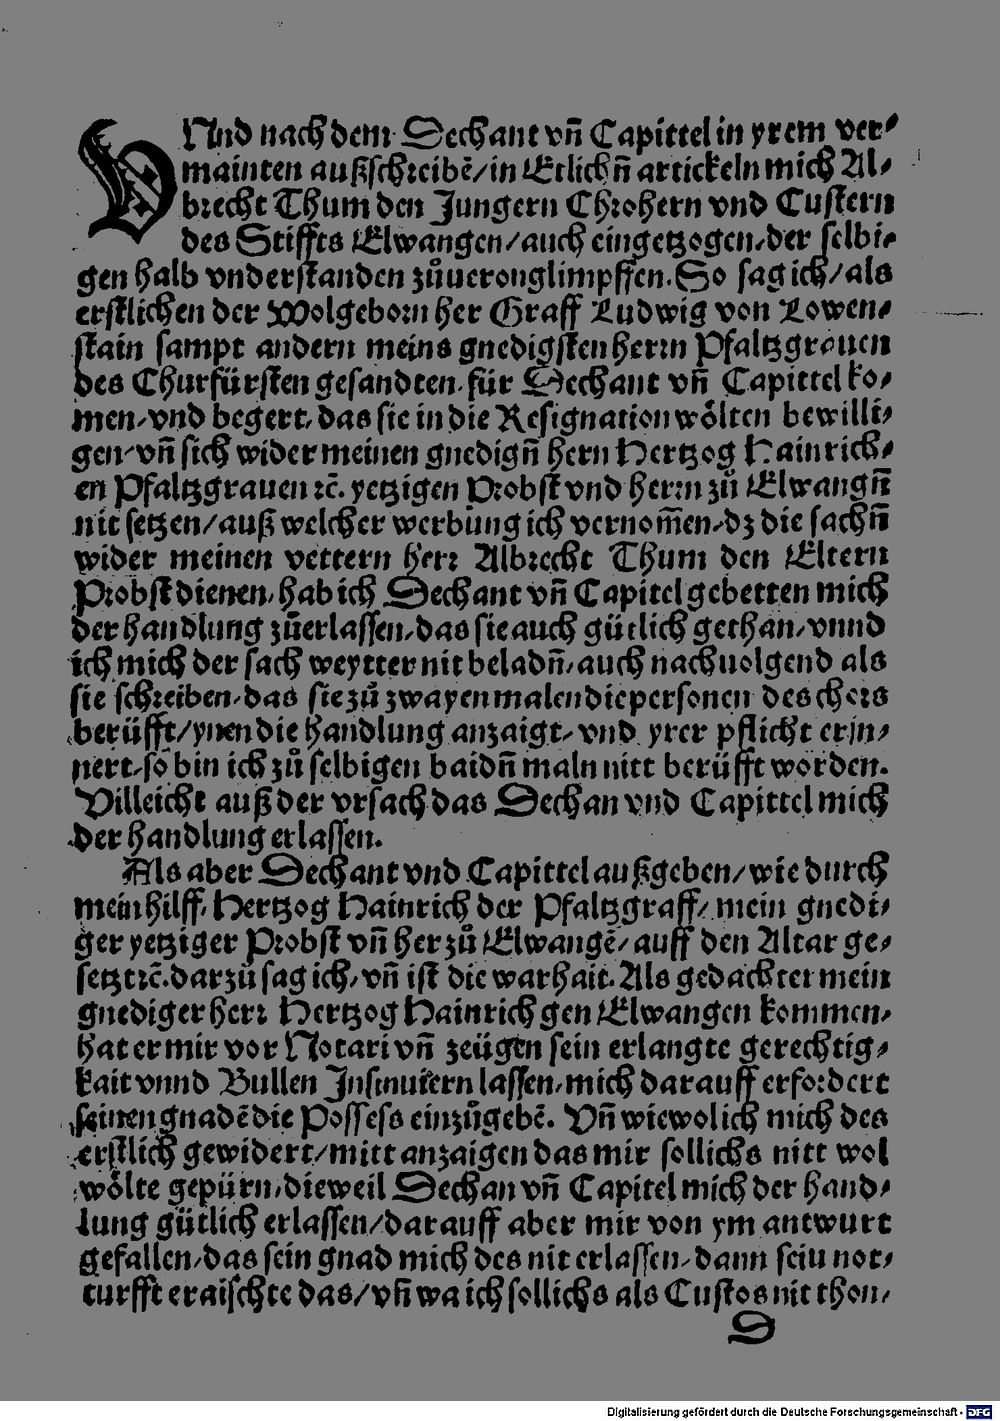 VNnd nach dem Dechant vn̄ Capittel in yrem ver⸗
mainten außschreibē/in Etlichn̄ artickeln mich Al⸗
brecht Thum den Jungern Chrohern vnd Custern
des Stiffts Elwangen/auch eingetzogen, der selbi⸗
gen halb vnderstanden zůueronglimpffen. So sag ich/als
erstlichen der Wolgeborn her Graff Ludwig von Lowen⸗
stain sampt andern meins gnedigsten herrn Pfaltzgrauen
des Churfürsten gesandten, für Dechant vn̄ Capittel ko⸗
men, vnd begert, das sie in die Resignation wölten bewilli⸗
gen, vn̄ sich wider meinen gnedign̄ hern Hertzog Hainrich⸗
en Pfaltzgrauen ꝛc̄. yetzigen Probst vnd herrn zů Elwangn̄
nit setzen/auß welcher werbung ich vernom̄en, dz die sachn̄
wider meinen vettern herr Albrecht Thum den Eltern
Probst dienen, hab ich Dechant vn̄ Capitel gebetten mich
der handlung zůerlassen, das sie auch gütlich gethan, vnnd
ich mich der sach weytter nit beladn̄, auch nachuolgend als
sie schreiben, das sie zů zwayen malen die personen des chors
berüfft/ynen die handlung anzaigt, vnd yrer pflicht erin⸗
nert, so bin ich zů selbigen baidn̄ maln nitt berüfft worden.
Villeicht auß der vrsach das Dechan vnd Capittel mich
der handlung erlassen.
Als aber Dechant vnd Capittel außgeben/wie durch
mein hilff, Hertzog Hainrich der Pfaltzgraff/mein gnedi⸗
ger yetziger Probst vn̄ her zů Elwangē/auff den Altar ge⸗
setzt ꝛc̄. darzů sag ich, vn̄ ist die warhait. Als gedachter mein
gnediger herr Hertzog Hainrich gen Elwangen kommen,
hat er mir vor Notari vn̄ zeügen sein erlangte gerechtig⸗
kait vnnd Bullen Jnsinuiern lassen, mich darauff erfordert
seinen gnadē die Possess einzůgebē. Vn̄ wiewol ich mich des
erstlich gewidert/mitt anzaigen das mir sollichs nitt wol
wölte gepürn, dieweil Dechan vn̄ Capitel mich der hand⸗
lung gütlich erlassen/darauff aber mir von ym antwurt
gefallen, das sein gnad mich des nit erlassen, dann sein not⸗
turfft eraischte das/vn̄ wa ich sollichs als Custos nit thon,
D
Digitalisierung gefördert durch die Deutsche Forschungsgemeinschaft - DFG